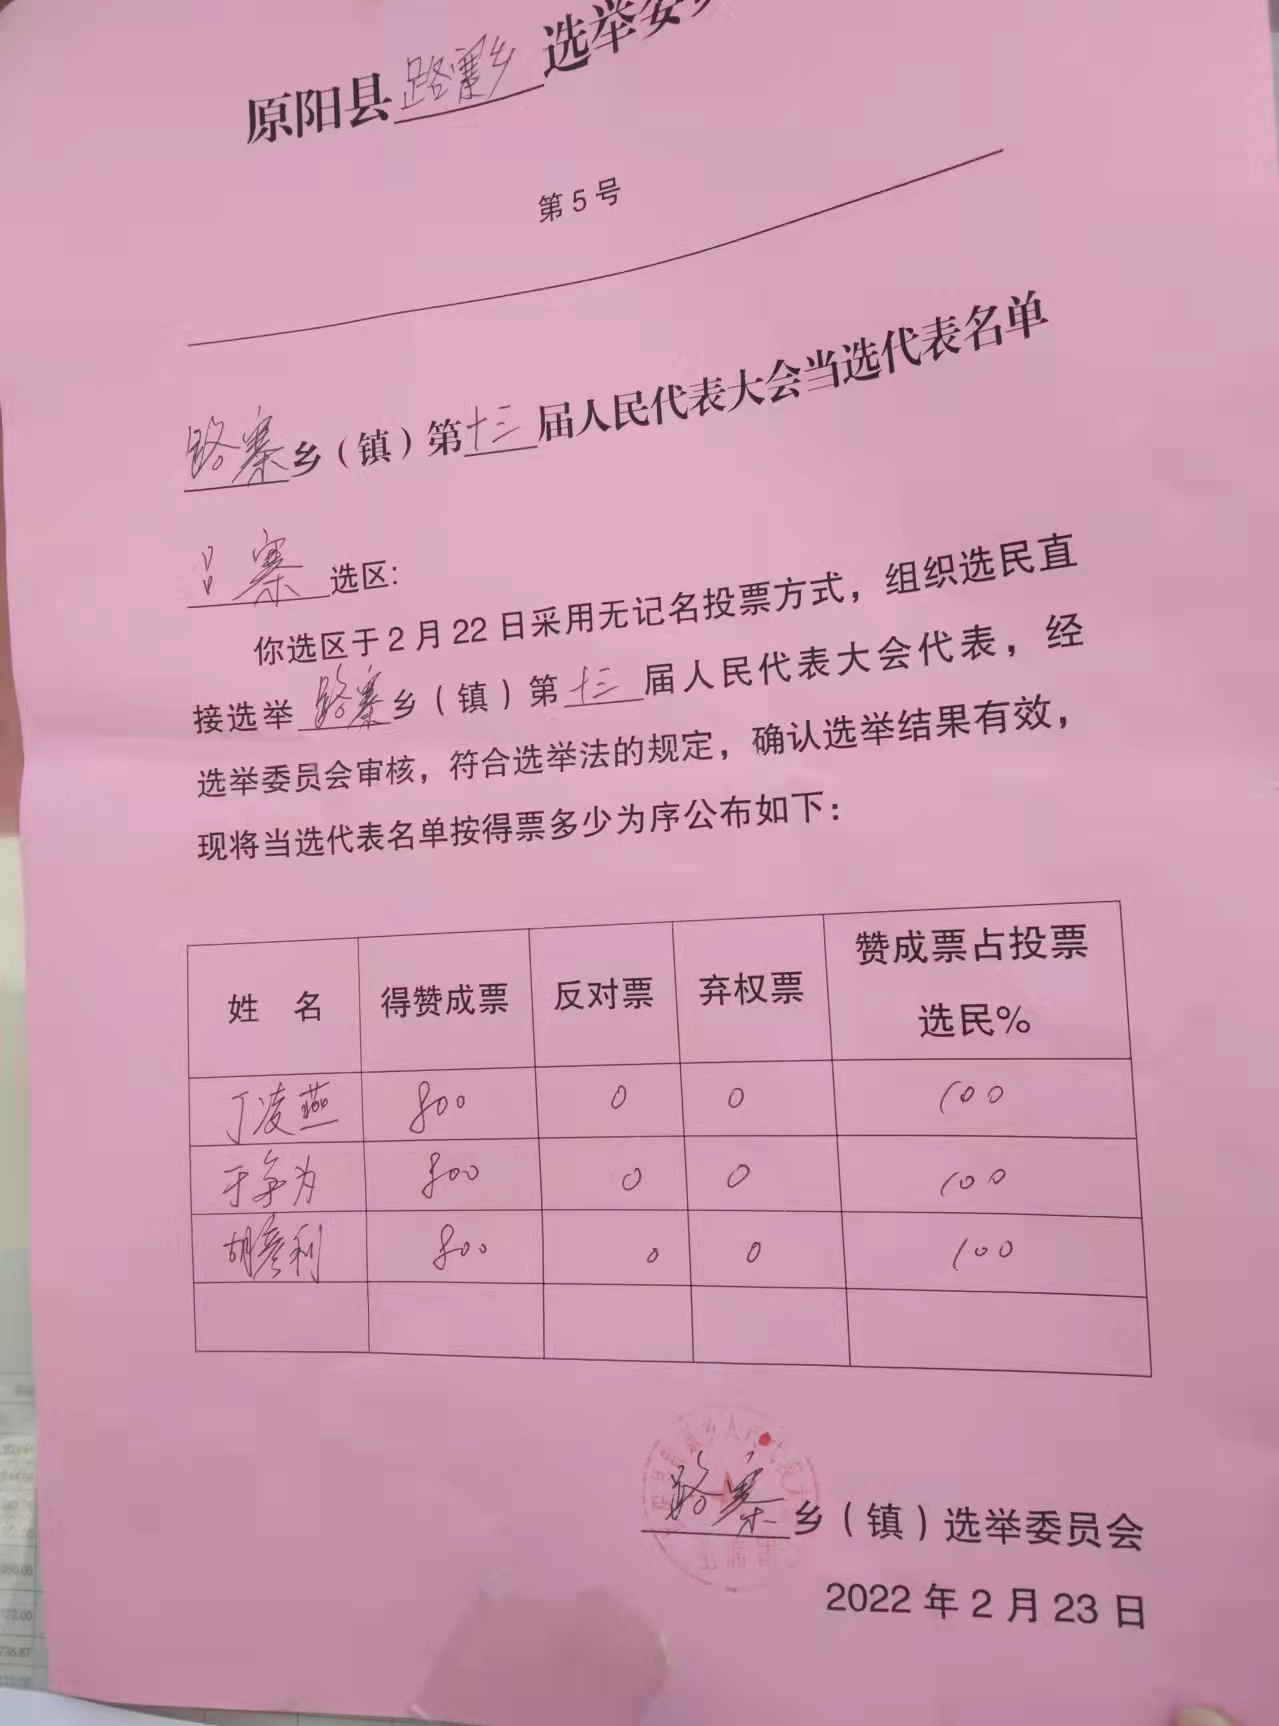 原阳县路寨乡选举委
第5号
路寨乡（镇）第十三届人民代表大会当选代表名单
吕寨选区：
你选区于2月22日采用无记名投票方式，组织选民直
接选举路寨乡（镇）第十三届人民代表大会代表，经
选举委员会审核，符合选举法的规定，确认选举结果有效，
现将当选代表名单按得票多少为序公布如下：
姓 名 得赞成票 反对票 弃权票 赞成票占投票
选民%
丁凌燕 800 0 0 100
于争为 800 0 0 100
胡彦利 800 0 0 100
路寨乡（镇）选举委员会
2022年2月23日